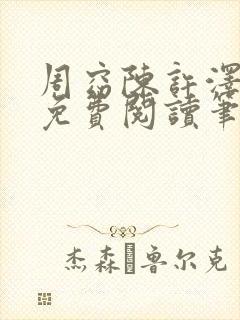 周窈陳許澤
免費閱讀筆
杰森·魯尔克